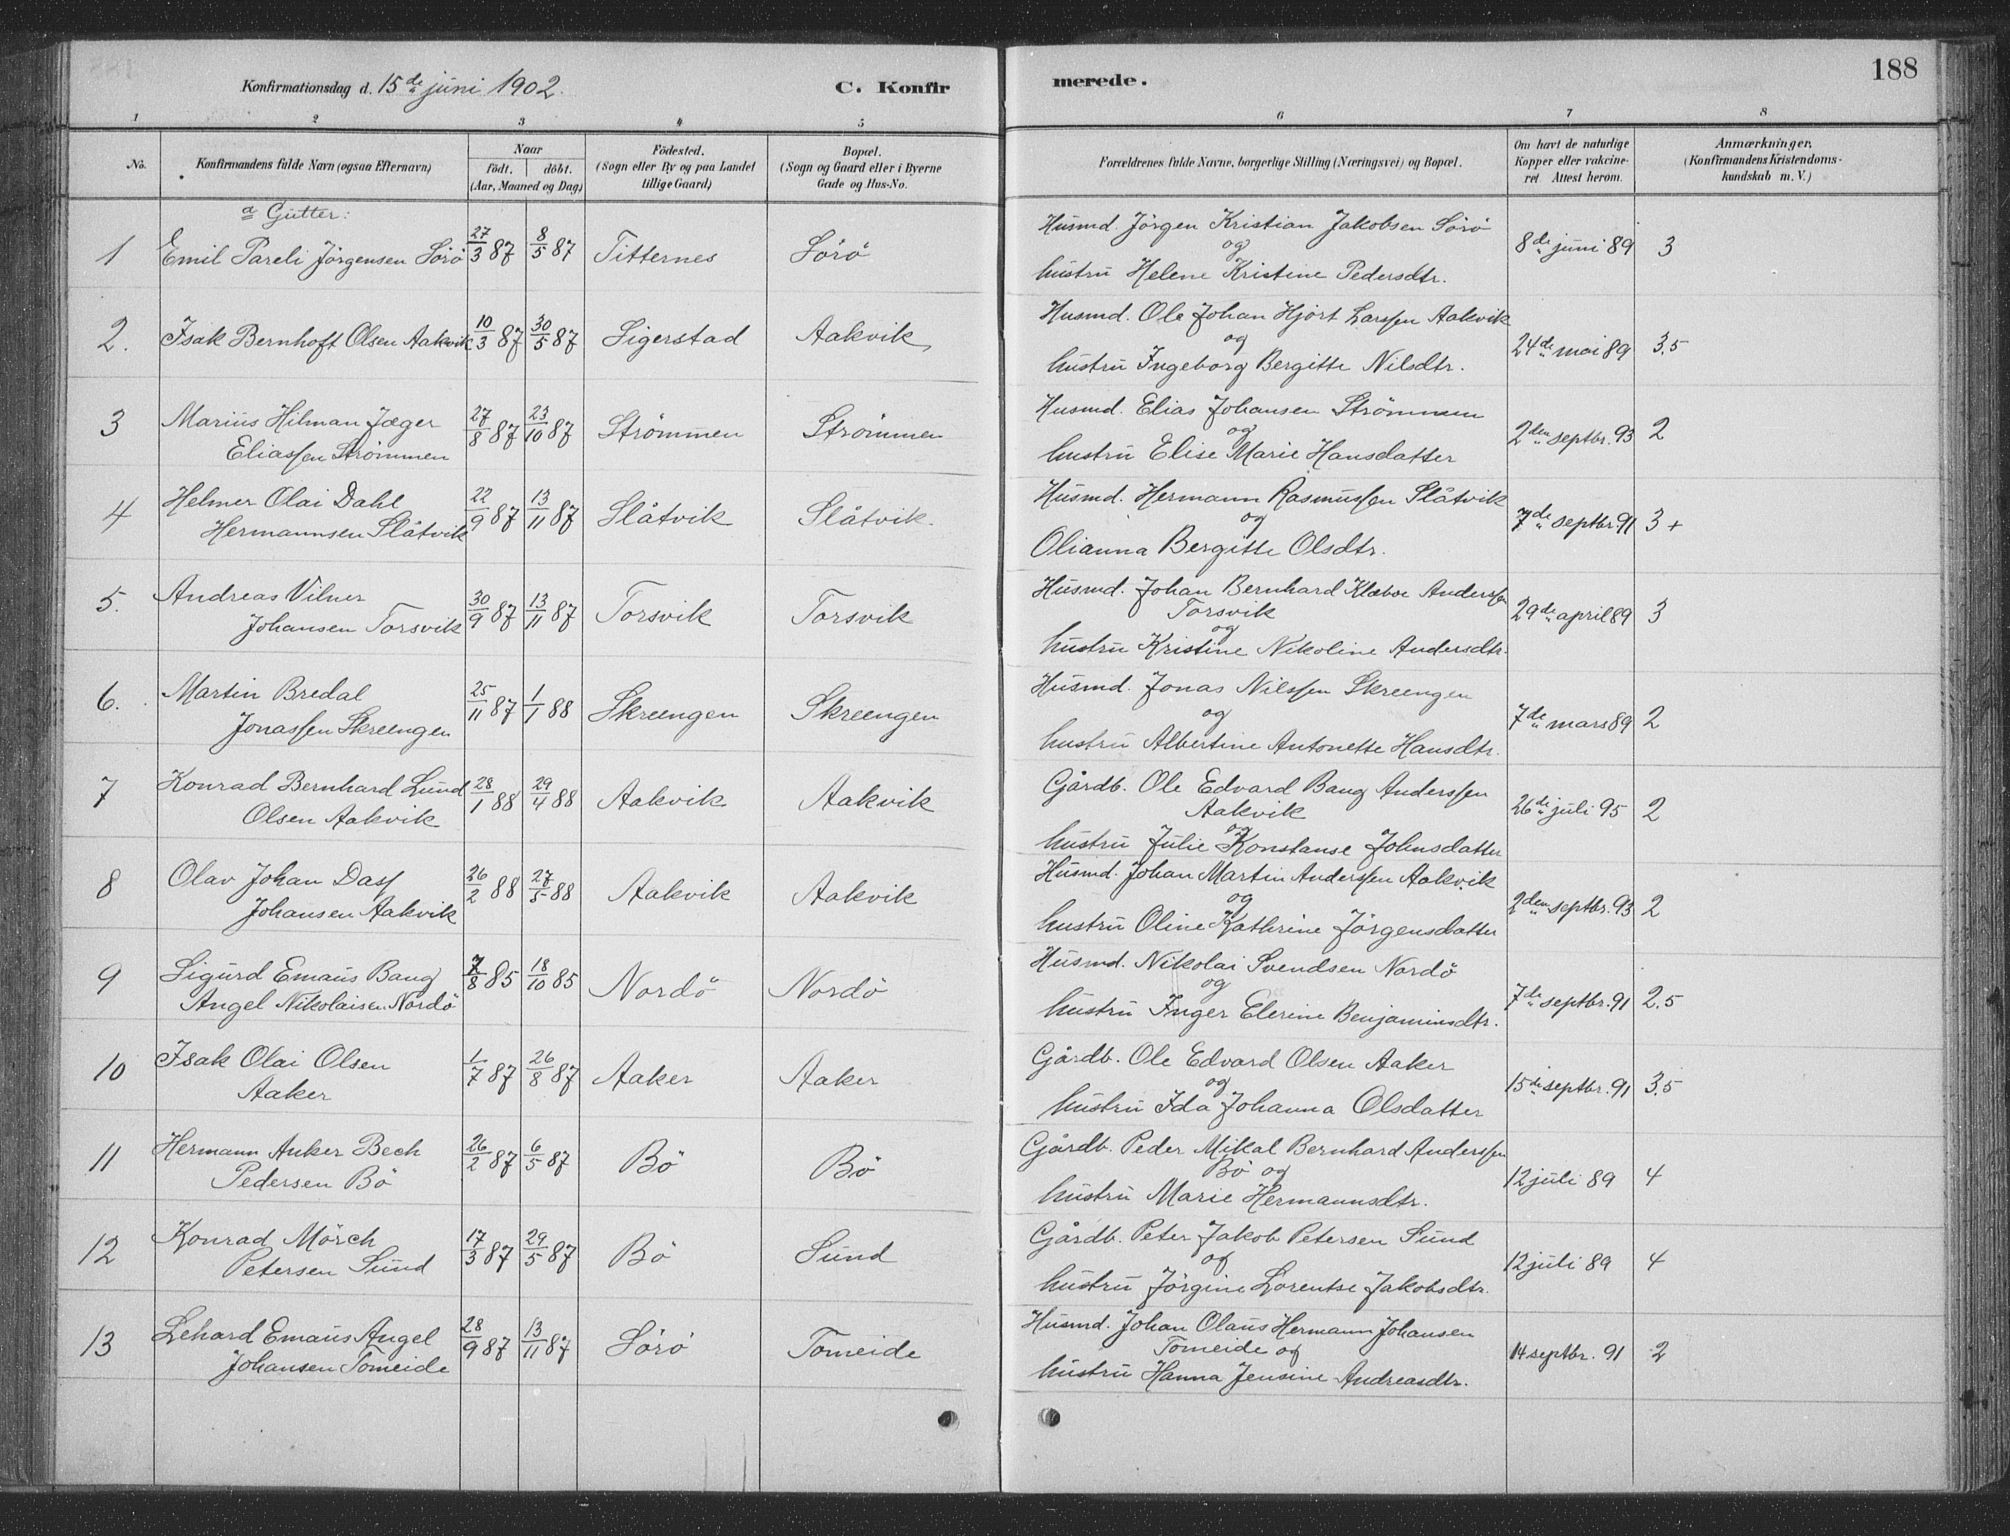 188
Konfirmationsdag d. 15de juni 1902.
C. Konfirmerede.
1 2 3 4 5 6 7 8
No.
Konfirmandens fulde Navn (ogsaa Efternavn)
Naar
födt. döbt.
(Aar, Maaned og Dag)
Födested.
(Sogn eller By og paa Landet
tillige Gaard)
Bopæl.
(Sogn og Gaard eller i Byerne
Gade og Hus-No.
Forældrenes fulde Navne, borgerlige Stilling (Næringsvei) og Bopæl.
Om havt de naturlige
Kopper eller vakcine-
ret Attest herom.
Anmærkninger,
(Konfirmandens Kristendoms-
kundskab m. V.)
a Gutter:
1 Emil Pareli Jörgensen Sörö 27/3 87 8/5 87 Titternes Sörö
Husmd. Jörgen Kristian Jakobsen Sörö
og
hustru Helene Kristine Pedersdtr.
8de juni 89 3
2. Isak Bernhoft Olsen Aakvik 10/3 87 30/5 87 Sigerstad Aakvik
Husmd. Ole Johan Hjort Larssen Aakvik
og
hustru Ingeborg Bergitte Nilsdtr.
24de mai 89 3.5
3 Marius Hilman Jæger
Eliassen Strömmen 27/8 87 23/10 87 Strömmen Strömmen
Husmd. Elias Johansen Strömmen
og
hustru Elise Marie Hansdatter
2den septbr. 93 2
4 Helmer Olai Dahl
Hermannsen Slåtvik 22/9 87 13/11 87 Slåtvik Slåtvik.
Husmd. Hermann Rasmussen Slåtvik
og
Olianna Bergitte Olsdtr.
7de septbr. 91 3+
5. Andreas Vilner
Johansen Torsvik 30/9 87 13/11 87 Torsvik Torsvik
Husmd. Johan Bernhard Klæboe Anderssen
Torsvik
og
hustru Kristine Nikoline Andersdtr.
29de april 89 3
6. Martin Bredal
Jonassen Skreengen 25/11 87 1/1 88 Skreengen Skreengen
Husmd. Jonas Nilssen Skreengen
og
hustru Albertine Antonette Hansdtr.
7de mars 89 2
7 Konrad Bernhard Lund
Olsen Aakvik 28/1 88 29/4 88 Aakvik Aakvik
Gårdb. Ole Edvard Bang Anderssen
Aakvik
og
hustru Julie Konstanse Johnsdatter
26de juli 95 2
8 Olav Johan Dass
Johansen Aakvik 26/2 88 27/5 88 Aakvik Aakvik
Husmd. Johan Martin Anderssen Aakvik
og
hustru Oline Kathrine Jörgensdatter
2den septbr. 93 2
9 Sigurd Emaus Bang
Angel Nikolaisen Nordö 7/8 85 18/10 85 Nordö Nordö
Husmd. Nikolai Svendsen Nordö
og
hustru Inger Elerine Benjaminsdtr.
7de septbr. 91 2.5
10 Isak Olai Olsen
Aaker 1/7 87 26/8 87 Aaker Aaker
Gårdb. Ole Edvard Olsen Aaker
og
hustru Ida Johanna Olsdatter
15de septbr. 91 3.5
11 Hermann Anker Bech
Pedersen Bö 26/2 87 6/5 87 Bö Bö
Gårdb. Peder Mikal Bernhard Anderssen
Bö og
hustru Marie Hermannsdtr.
12 juli 89 4
12 Konrad Mörch
Petersen Sund 17/3 87 29/5 87 Bö Sund
Gårdb. Peter Jakob Petersen Sund
og
hustru Jörgine Lorentse Jakobsdtr.
12 juli 89 4
13 Lehard Emaus Angel
Johansen Tomeide 28/9 87 13/11 87 Sörö Tomeide
Husmd. Johan Olaus Hermann Johansen
Tomeide og
hustru Hanna Jensine Andreasdtr.
14 septbr. 91 2